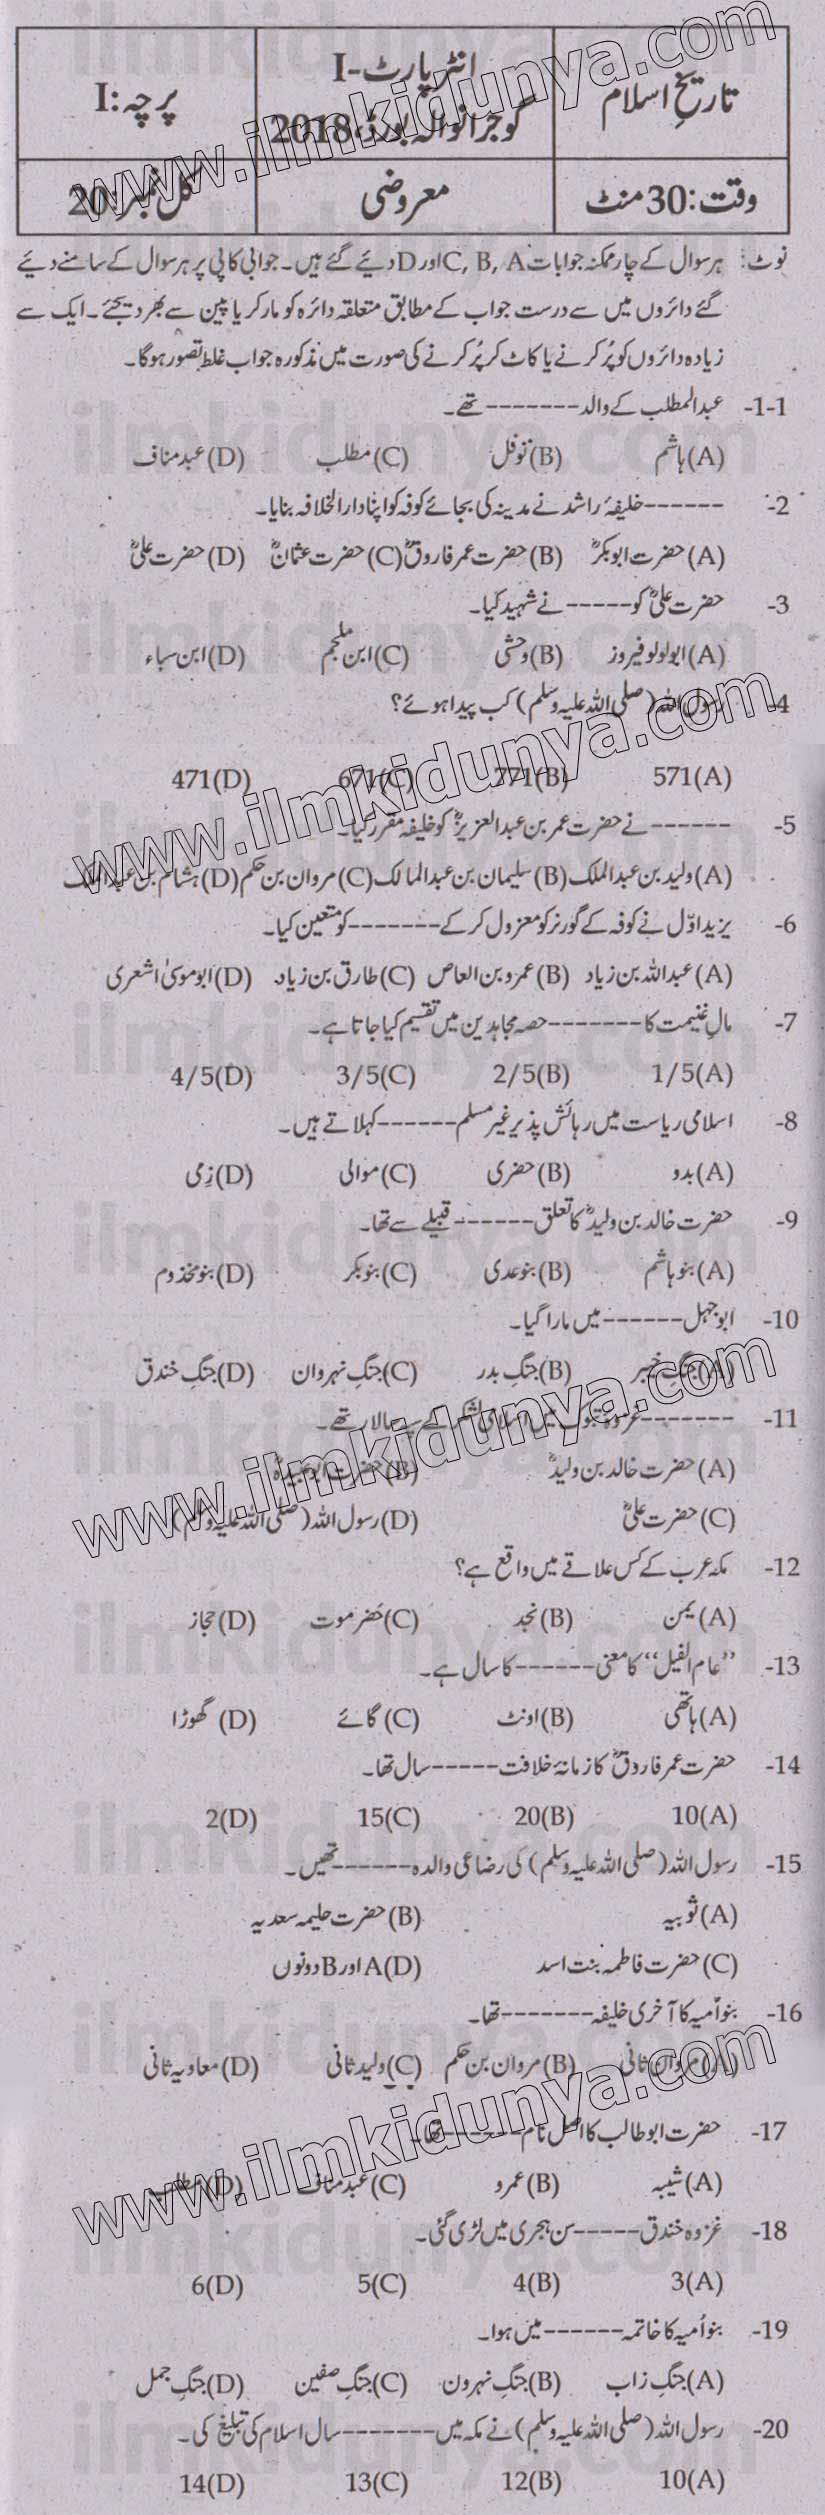 تاریخِ اسلام
انٹر پارٹ-I
گوجرانوالہ بورڈ، 2018
پرچہ: I
وقت: 30 منٹ
معروضی
کل نمبر: 20
نوٹ: ہر سوال کے چار ممکنہ جوابات C, B, A اور D دیئے گئے ہیں۔ جوابی کاپی پر ہر سوال کے سامنے دیئے
گئے دائروں میں سے درست جواب کے مطابق متعلقہ دائرہ کو مارکر یا پین سے بھر دیجئے۔ ایک سے
زیادہ دائروں کو پُر کرنے یا کاٹ کر پُر کرنے کی صورت میں مذکورہ جواب غلط تصور ہوگا۔
1-1- عبدالمطلب کے والد ------- تھے۔
(A) ہاشم (B) نوفل (C) مطلب (D) عبد مناف
2- ------ خلیفۂ راشد نے مدینہ کی بجائے کوفہ کو اپنا دارالخلافہ بنایا۔
(A) حضرت ابوبکرؓ (B) حضرت عمر فاروقؓ (C) حضرت عثمانؓ (D) حضرت علیؓ
3- حضرت علیؓ کو ----- نے شہید کیا۔
(A) ابولولو فیروز (B) وحشی (C) ابن ملجم (D) ابن سباء
4- رسول اللہ (صلی اللہ علیہ وسلم) کب پیدا ہوئے؟
571(A) 771(B) 671(C) 471(D)
5- ------ نے حضرت عمر بن عبدالعزیزؒ کو خلیفہ مقرر کیا۔
(A) ولید بن عبدالملک (B) سلیمان بن عبدالمالک (C) مروان بن حکم (D) ہشام بن عبدالملک
6- یزید اوّل نے کوفہ کے گورنر کو معزول کر کے ------- کو متعین کیا۔
(A) عبداللہ بن زیاد (B) عمرو بن العاص (C) طارق بن زیاد (D) ابوموسیٰ اشعری
7- مالِ غنیمت کا ------- حصہ مجاہدین میں تقسیم کیا جاتا ہے۔
1/5(A) 2/5(B) 3/5(C) 4/5(D)
8- اسلامی ریاست میں رہائش پذیر غیر مسلم ------ کہلاتے ہیں۔
(A) بدو (B) حضری (C) موالی (D) ذِمی
9- حضرت خالد بن ولیدؓ کا تعلق ------ قبیلے سے تھا۔
(A) بنو ہاشم (B) بنو عدی (C) بنو بکر (D) بنو مخذوم
10- ابوجہل ------ میں مارا گیا۔
(A) جنگِ خیبر (B) جنگِ بدر (C) جنگِ نہروان (D) جنگِ خندق
11- ------- غزوہ تبوک میں اسلامی لشکر کے سپہ سالار تھے۔
(A) حضرت خالد بن ولیدؓ (B) حضرت ابوعبیدہؓ
(C) حضرت علیؓ (D) رسول اللہ (صلی اللہ علیہ وسلم)
12- مکہ عرب کے کس علاقے میں واقع ہے؟
(A) یمن (B) نجد (C) حضر موت (D) حجاز
13- ”عام الفیل“ کا معنی ------ کا سال ہے۔
(A) ہاتھی (B) اونٹ (C) گائے (D) گھوڑا
14- حضرت عمر فاروقؓ کا زمانۂ خلافت ----- سال تھا۔
10(A) 20(B) 15(C) 2(D)
15- رسول اللہ (صلی اللہ علیہ وسلم) کی رضاعی والدہ ------ تھیں۔
(A) ثوبیہ (B) حضرت حلیمہ سعدیہ
(C) حضرت فاطمہ بنت اسد (D) A اور B دونوں
16- بنو اُمیہ کا آخری خلیفہ ------- تھا۔
(A) مروان ثانی (B) مروان بن حکم (C) ولید ثانی (D) معاویہ ثانی
17- حضرت ابو طالب کا اصل نام ------ تھا۔
(A) شیبہ (B) عمرو (C) عبد مناف (D) مطلب
18- غزوہ خندق ----- سن ہجری میں لڑی گئی۔
3(A) 4(B) 5(C) 6(D)
19- بنو اُمیہ کا خاتمہ ------ میں ہوا۔
(A) جنگِ زاب (B) جنگِ نہرون (C) جنگِ صفین (D) جنگِ جمل
20- رسول اللہ (صلی اللہ علیہ وسلم) نے مکہ میں ------- سال اسلام کی تبلیغ کی۔
10(A) 12(B) 13(C) 14(D)
www.ilmkidunya.com
www.ilmkidunya.com
www.ilmkidunya.com
www.ilmkidunya.com